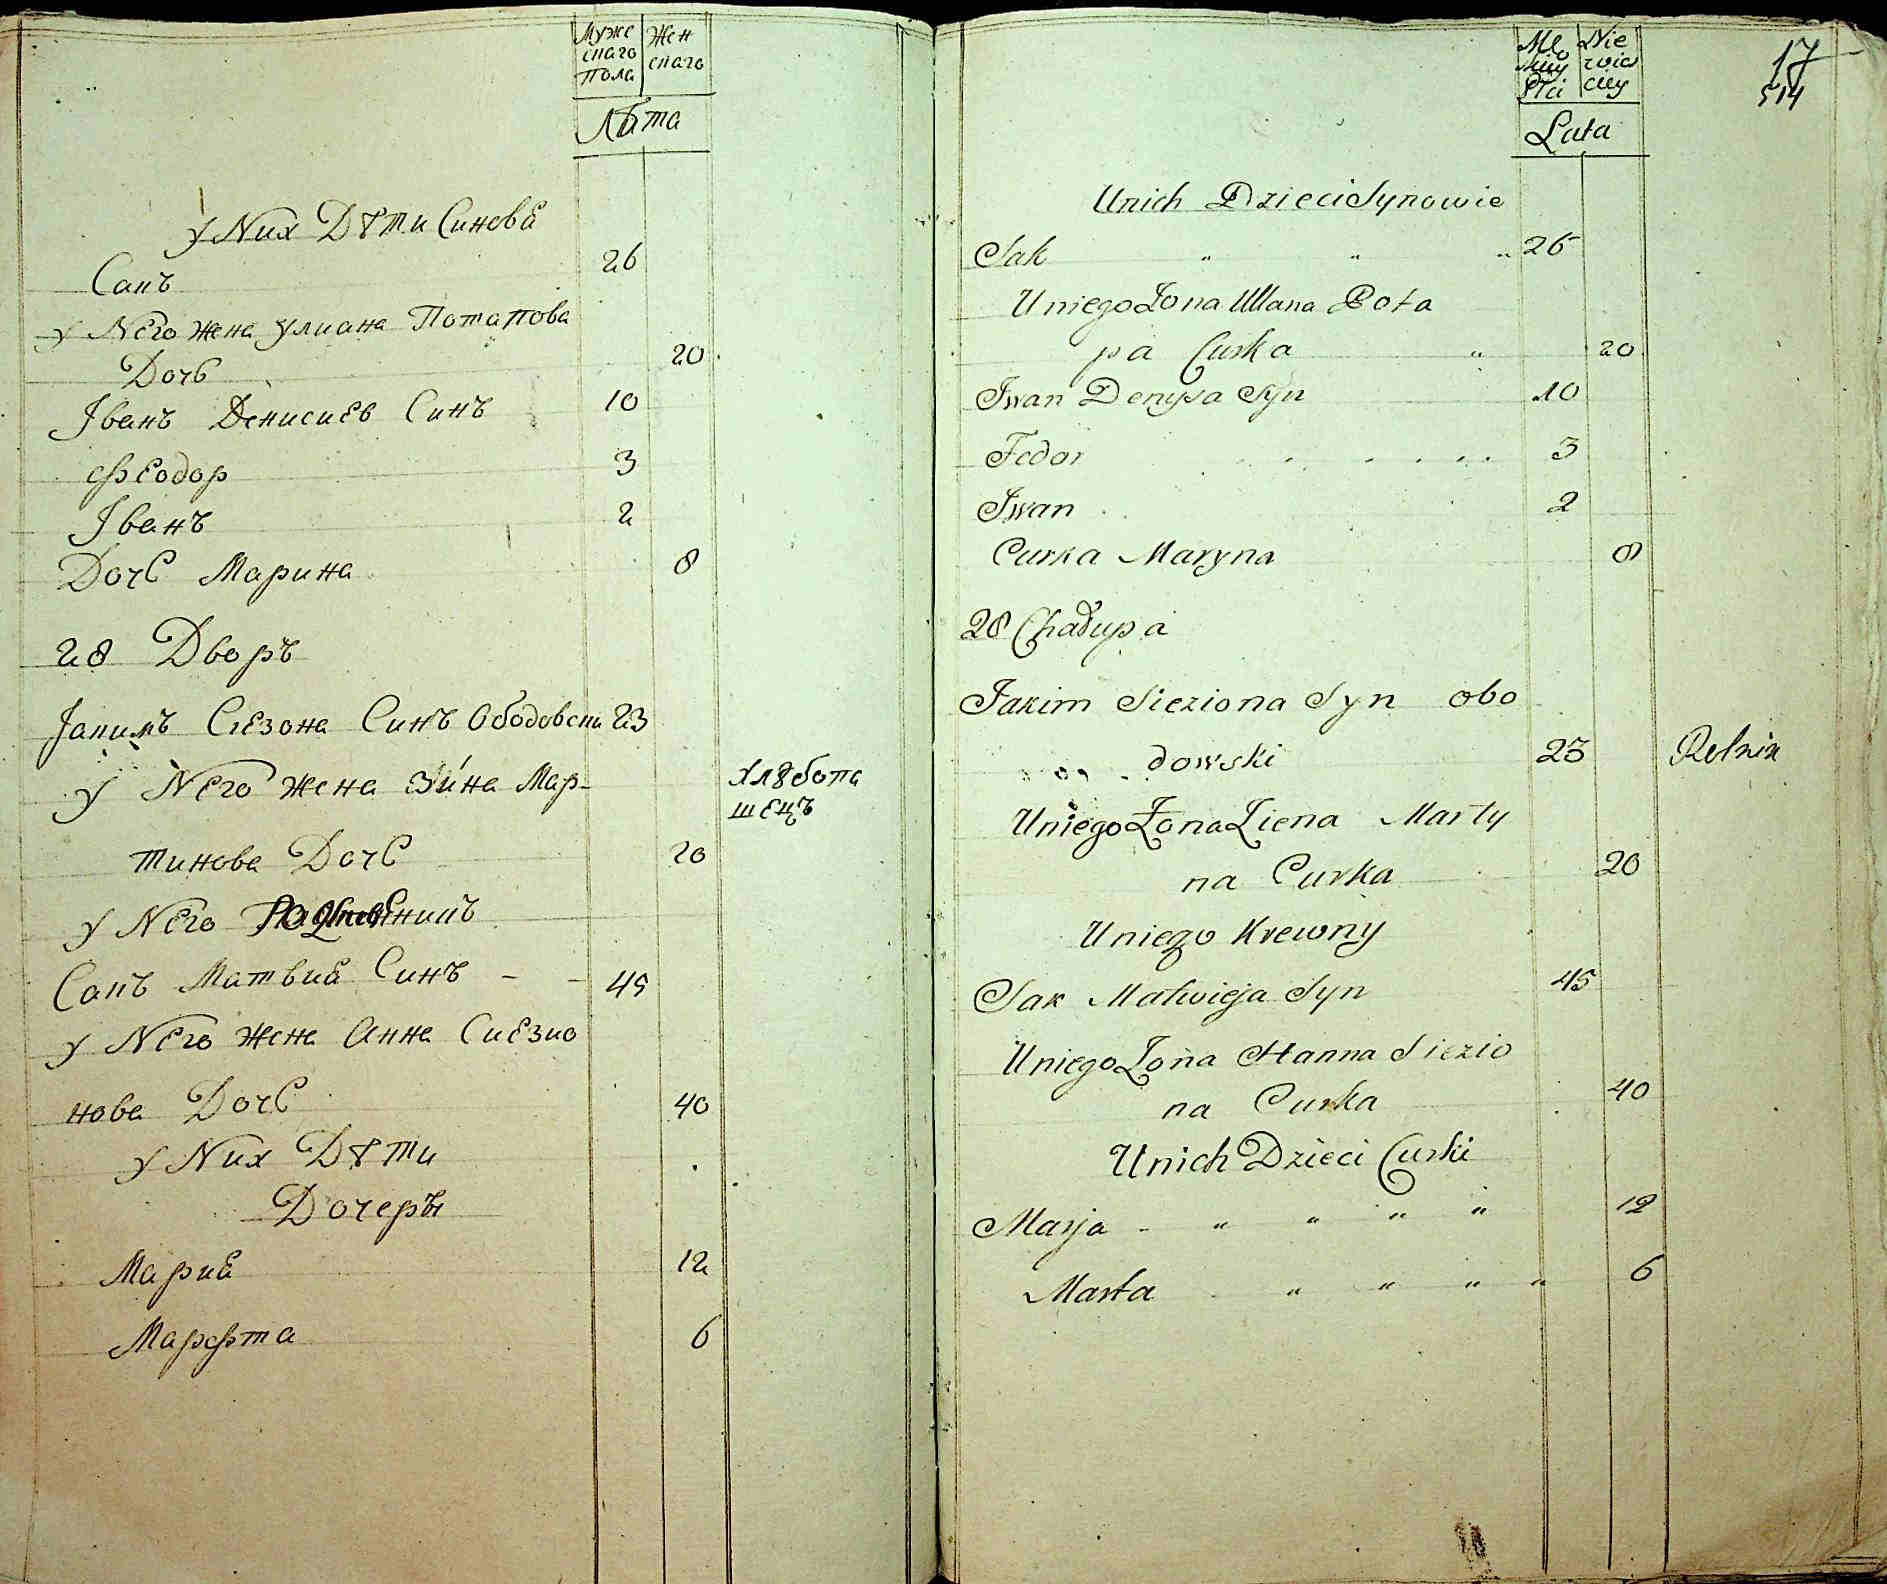 Муже Жен
скаго скаго
пола
Лѣта
У Них Дѣти Синовѣ
Сакъ 26
У Него жена Улиана Потапова
Дочь 20
Іванъ Денисиев Синъ 10
Феодор 3
Іванъ 2
Дочь Марина 8
28 Дворъ
Іакимъ Сѣезона Синъ Ободовски 23
У Него Жена Зина Мар-
Хлѣбопа
шецъ
тинова Дочь 20
У Него
Сакъ Матвиѣ Синъ - - 45
У Него жена Анна Сиезио
нова Дочь 40
У Них Дѣти
Дочеры
Мариѣ 12
Марфта 6
17
514
Mę Nie
skiy wia
Płci cey
Lata
Unich Dzieci Synowie
Sak " " " 26
Uniego Żona Ullana Pota
pa Curka " 20
Iwan Denysa Syn 10
Fedor . . . . . . 3
Iwan 2
Curka Maryna 8
28 Chałupa
Jakim Sieziona Syn obo
dowski 23 Rolnik
Uniego Żona Ziena Marty
na Curka 20
Uniego Krewny
Sak Matwieja Syn 45
Uniego Żona Hanna Siezio
na Curka 40
Unich Dzieci Curki
Marja - " " " " 12
Marta " " " " 6